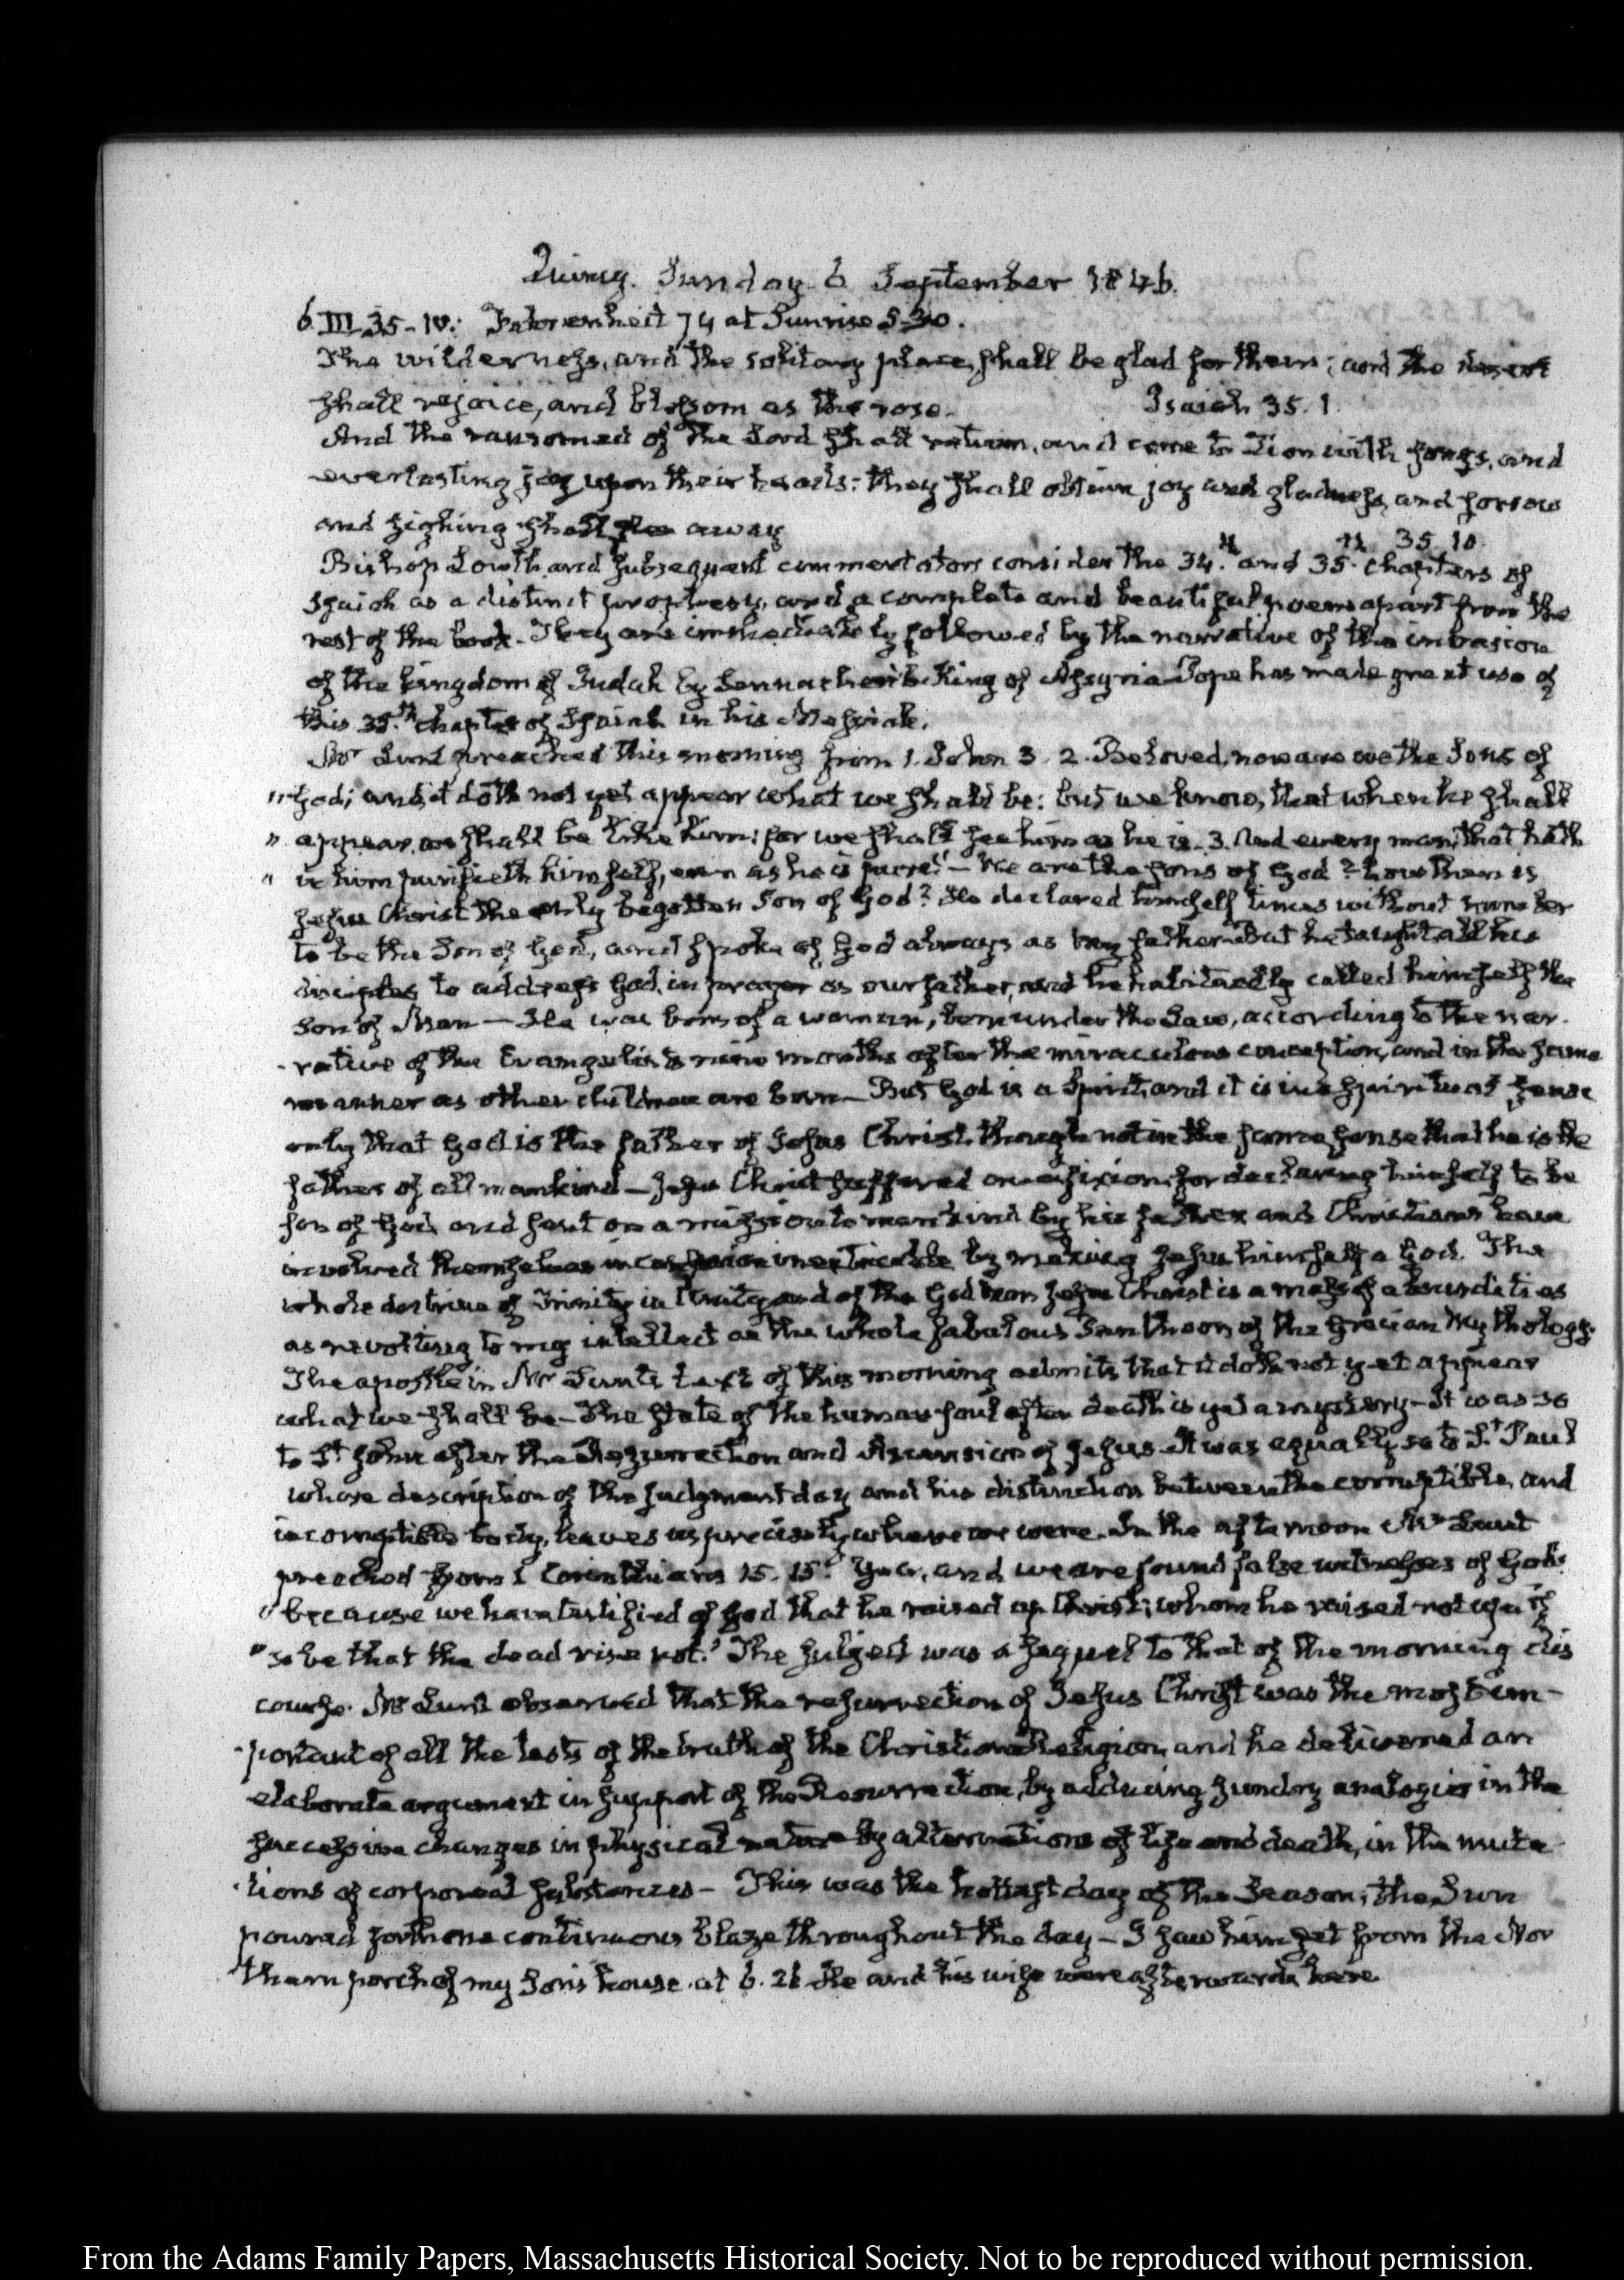 Quincy. Sunday 6 September 1846.
6. III.35-IV. Fahrenheit 74 at Sunrise 5-30.
The wilderness, and the solitary place, shall be glad for them; and the desert
shall rejoice, and blossom as the rose. Isaiah 35.1.
And the ransomed of the Lord shall return, and come to Zion with songs, and
everlasting joy upon their heads: they shall obtain joy and gladness, and sorrow
and sighing shall flee away 35.10.
Bishop Lowth and subsequent commentators consider the 34.th and 35.th chapters of
Isaiah as a distinct prophesy, and a complete and beautiful poem apart from the
rest of the book. They are immediately followed by the narrative of the invasion
of the kingdom of Judah by Sennacherib King of Assyria. Pope has made great use of
this 35.th chapter of Isaiah in his Messiah.
Mr Lunt preached this morning from 1. John 3. 2. Beloved, now are we the Sons of
"God; and it doth not yet appear what we shall be: but we know, that when he shall
" appear, we shall be like him: for we shall see him as he is. 3. And every man, that hath
" in him purifieth himself, even as he is pure." — We are the sons of God? how then is
Jesus Christ the only begotten Son of God? He declared himself times without number
to be the Son of God, and spoke of God always as my father. But he taught all his
disciples to address God, in prayer as our father, and he habitually called himself the
Son of Man — He was born of a woman, born under the Law, according to the nar-
-rative of the Evangelists nine months after the miraculous conception, and in the same
manner as other children are born — But God is a Spirit, and it is in a spiritual sense
only that God is the father of Jesus Christ, though not in the same sense that he is the
father of all mankind — Jesus Christ suffered crucifixion for declaring himself to be
son of God and sent on a mission to mankind by his father and Christians have
involved themselves in confusion inextricable by making Jesus himself a God. The
whole doctrine of Trinity in Unity and of the God man Jesus Christ is a mass of absurdities
as revolting to my intellect as the whole fabulous Pantheon of the Grecian Mythology.
The apostle in Mr Lunt's text of this morning admits that it doth not yet appear
what we shall be — The state of the human soul after death is yet a mystery — It was so
to St John after the Resurrection and Ascension of Jesus. It was equally so to St Paul
whose description of the judgment day and his distinction between the corruptible, and
incorruptible body, leaves us precisely where we were. In the afternoon Mr Lunt
preached from 1 Corinthians 15. 15. "Yea, and we are found false witnesses of God:
"because we have testified of God that he raised up Christ; whom he raised not up if
"so be that the dead rise not." The subject was a sequel to that of the morning dis
course. Mr Lunt observed that the resurrection of Jesus Christ was the most im-
-portant of all the tests of the truth of the Christian Religion, and he delivered an
elaborate argument in support of the Resurrection, by adducing sundry analogies in the
successive changes in physical nature by alternations of life and death, in the muta
-tions of corporeal substances — This was the hottest day of the Season, the Sun
poured forth one continuous blaze throughout the day — I saw him set from the Nor
thern porch of my Son's house at 6. 26. He and his wife were afterwards here
From the Adams Family Papers, Massachusetts Historical Society. Not to be reproduced without permission.